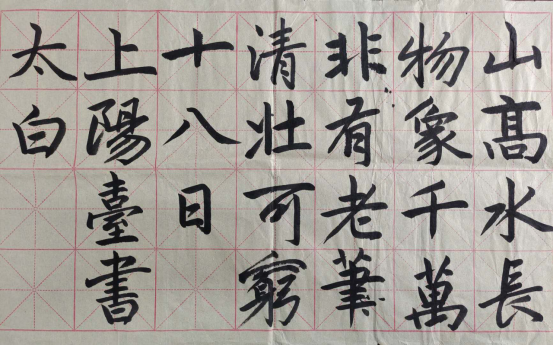 山高水長
物象千萬
非有老筆
清壯可窮
十八日
上陽臺書
太白